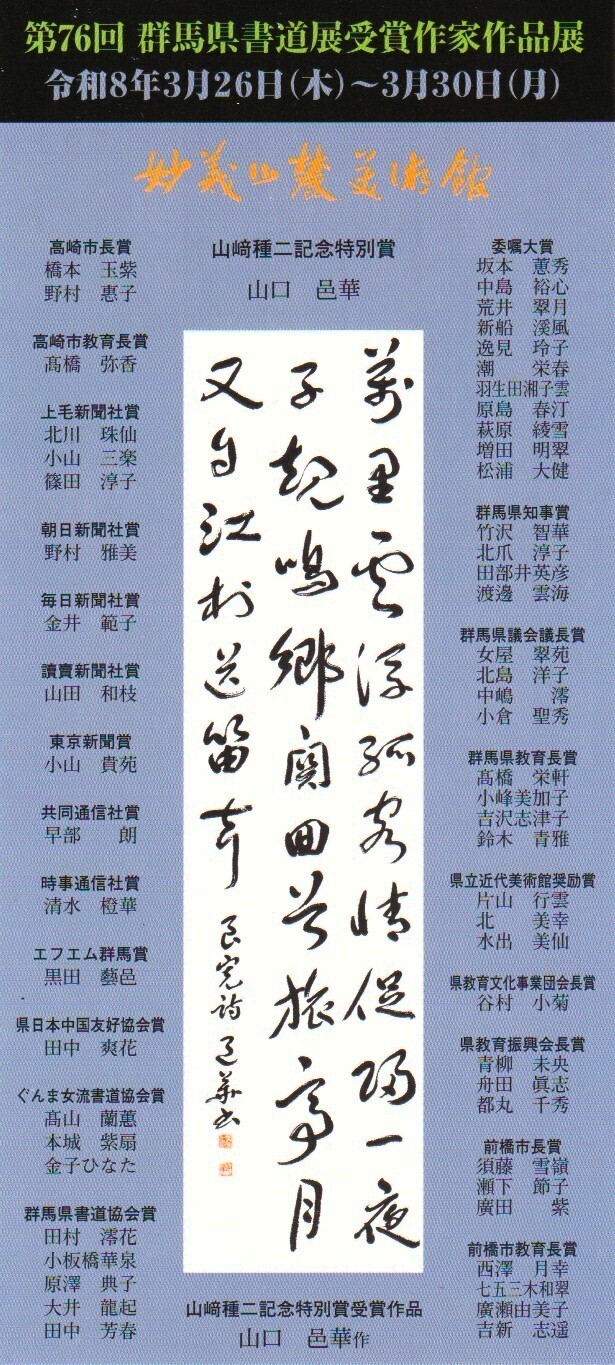 第76回 群馬県書道展受賞作家作品展
令和8年3月26日(木)~3月30日(月)
妙義山麓美術館
山﨑種二記念特別賞
山口 邑華
萬里雲浮孤客情促歸一夜
子規鳴郷関回首旅亭月
又自江村送笛声 良寛詩 邑華書
山﨑種二記念特別賞受賞作品
山口 邑華作
委嘱大賞
坂本 蕙秀
中島 裕心
荒井 翠月
新船 溪風
逸見 玲子
潮 栄春
羽生田湘子雲
原島 春汀
萩原 綾雪
増田 明翠
松浦 大健
群馬県知事賞
竹沢 智華
北爪 淳子
田部井英彦
渡邊 雲海
群馬県議会議長賞
女屋 翠苑
北島 洋子
中嶋 澪
小倉 聖秀
群馬県教育長賞
髙橋 栄軒
小峰美加子
吉沢志津子
鈴木 青雅
県立近代美術館奨励賞
片山 行雲
北 美幸
水出 美仙
県教育文化事業団会長賞
谷村 小菊
県教育振興会長賞
青柳 未央
舟田 眞志
都丸 千秀
前橋市長賞
須藤 雪嶺
瀬下 節子
廣田 紫
前橋市教育長賞
西澤 月幸
七五三木和翠
廣瀬由美子
吉新 志遥
高崎市長賞
橋本 玉紫
野村 惠子
高崎市教育長賞
髙橋 弥香
上毛新聞社賞
北川 珠仙
小山 三楽
篠田 淳子
朝日新聞社賞
野村 雅美
毎日新聞社賞
金井 範子
讀賣新聞社賞
山田 和枝
東京新聞賞
小山 貴苑
共同通信社賞
早部 朗
時事通信社賞
清水 橙華
エフエム群馬賞
黒田 藝邑
県日本中国友好協会賞
田中 爽花
ぐんま女流書道協会賞
髙山 蘭蕙
本城 紫扇
金子ひなた
群馬県書道協会賞
田村 澪花
小板橋華泉
原澤 典子
大井 龍起
田中 芳春